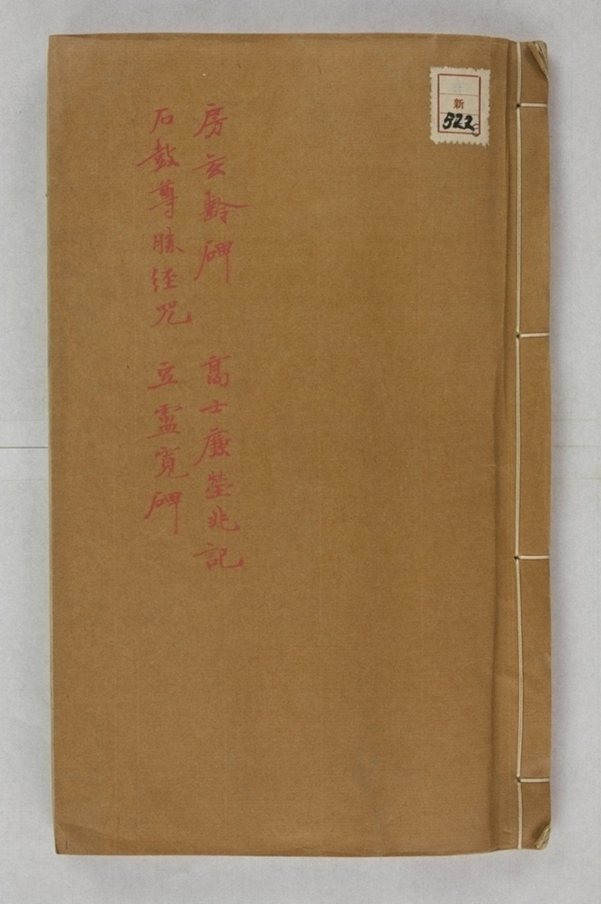 房玄齡碑 高士廉塋兆記
石鼓尊勝經咒 豆盧寬碑
新
522